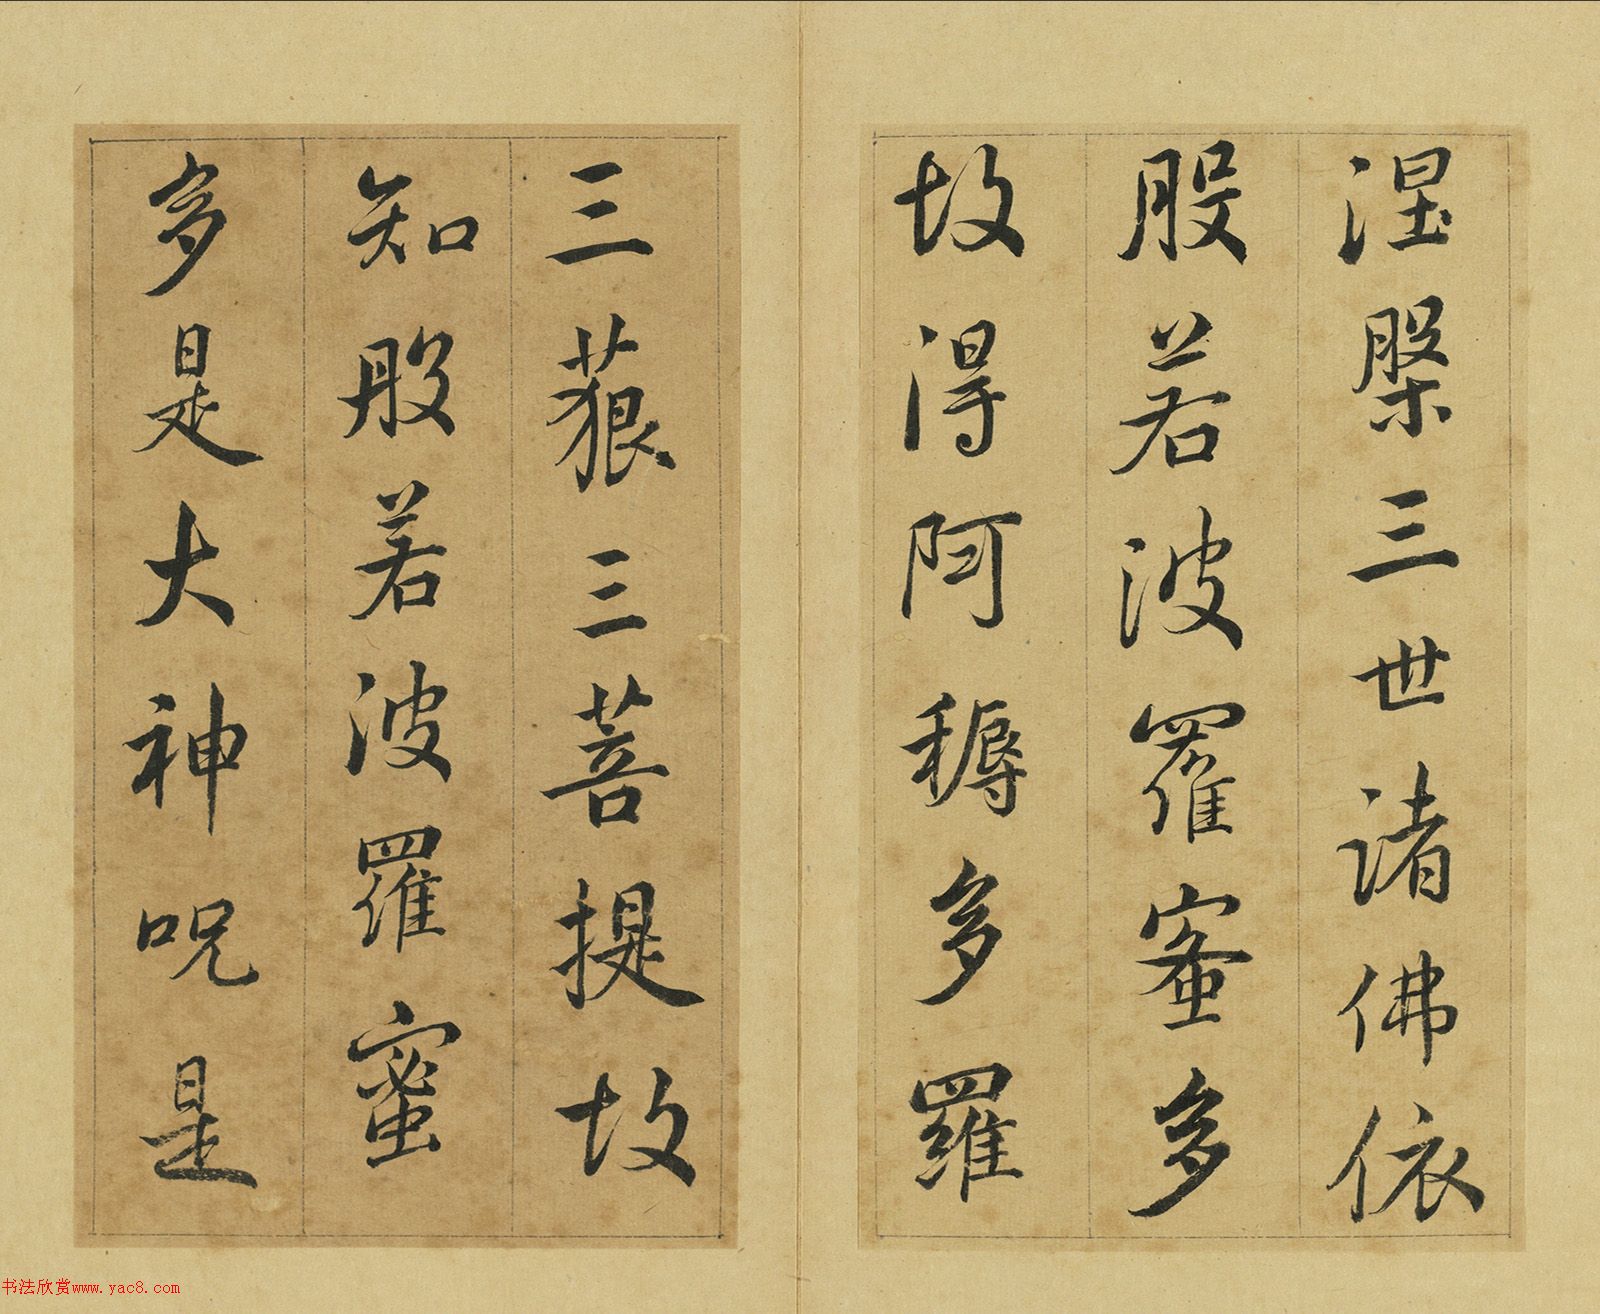 涅槃三世諸佛依
般若波羅蜜多
故得阿耨多羅
三藐三菩提故
知般若波羅蜜
多是大神呪是
书法欣赏www.yac8.com